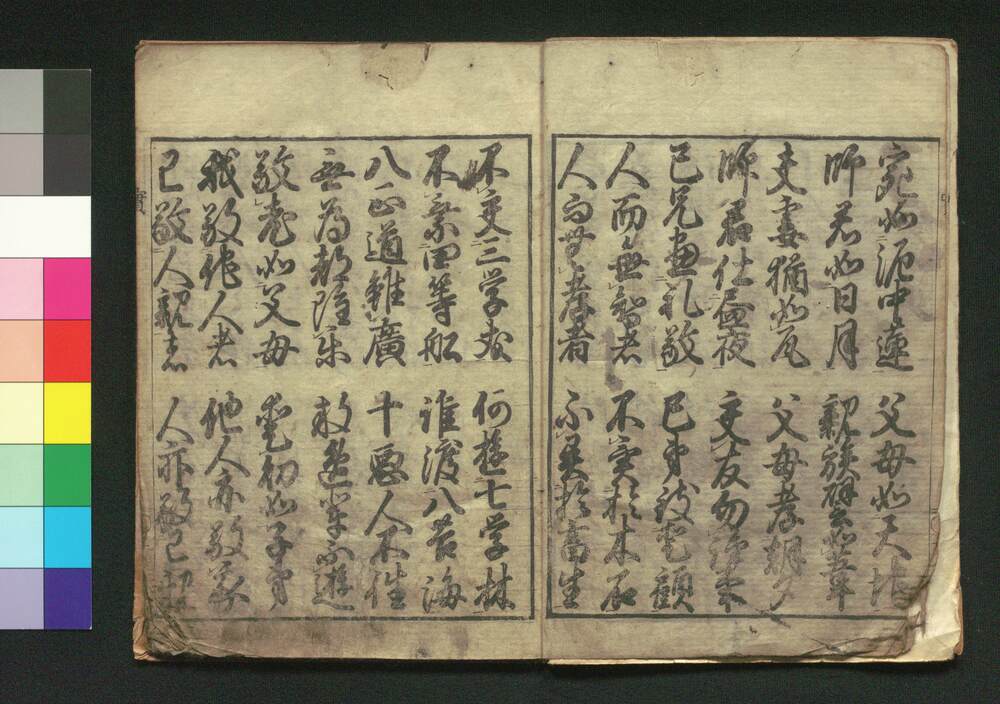 宛如泥中蓮　父母如天地
師君如日月　親族譬如葦
夫妻猶如瓦　父母孝朝夕
師君仕昼夜　交友勿諍事
己兄盡礼敬　己弟致愛顧
人而無智者　不異於木石
人而無孝者　不異於畜生
不交三学友　何遊七学林
不乗四等舩　誰渡八苦海
八正道雖廣　十悪人不往
無為都雖楽　放逸輩不遊
敬老如父母　愛幼如子弟
我敬他人者　他人亦敬我
己敬人親者　人亦敬己親